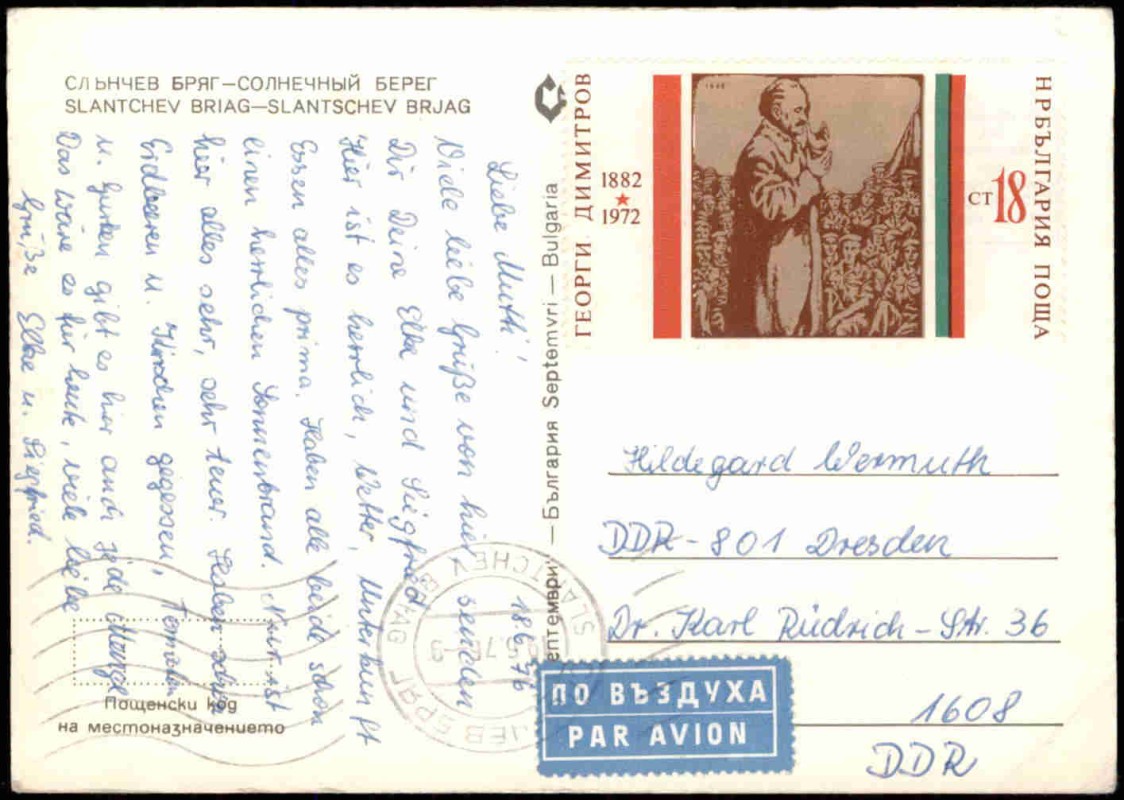 СЛЪНЧЕВ БРЯГ—СОЛНЕЧНЫЙ БЕРЕГ
SLANTCHEV BRIAG—SLANTSCHEV BRJAG
18.6.76
Liebe Mutti!
Viele liebe Grüße von hier senden
Dir Deine Elke und Siegfried
Hier ist es herrlich, Wetter, Unterkunft
Essen alles prima. Haben alle beide schon
einen herrlichen Sonnenbrand. Nur ist
hier alles sehr, sehr teuer. Haben schon
Erdbeeren u. Kirschen gegessen, Tomaten
u. Gurken gibt es hier auch jede Menge
Das wäre es für heute, viele liebe
Grüße Elke u. Siegfried.
Пощенски код
на местоназначението
Септември — България Septemvri — Bulgaria
ГЕОРГИ ДИМИТРОВ
1882
1972
СТ 18
НРБЪЛГАРИЯ ПОЩА
SLANTCHEV BRIAG
БРЯГ
Hildegard Wermuth
DDR-801 Dresden
Dr. Karl Rüdrich-Str. 36
1608
DDR
ПО ВЪЗДУХА
PAR AVION